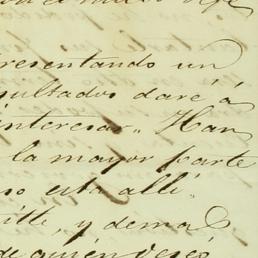 resentando un
sultados daré á
interesar. Han
la mayor parte
no está allí.
y demas
de quién deseó